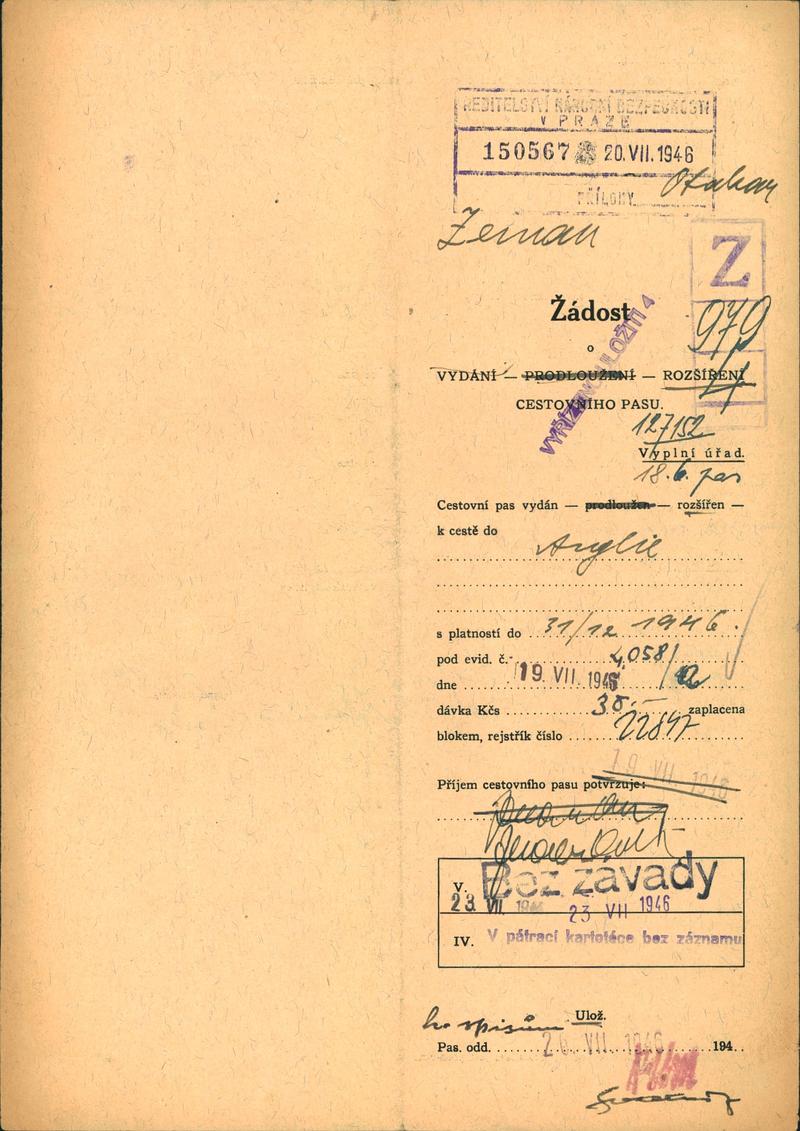 ŘEDITELSTVÍ NÁRODNÍ BEZPEČNOSTI
V PRAZE
150567 20.VII.1946
PŘÍLOHY
Otakar
Zeman
Z
979
4
Žádost
o
VYDÁNÍ — PRODLOUŽENÍ — ROZŠÍŘENÍ
CESTOVNÍHO PASU.
127152
Vyplní úřad.
18.6. pas
Cestovní pas vydán — prodloužen — rozšířen —
k cestě do
Anglie
s platností do 31/12 1946.
pod evid. č. 40581
dne 19. VII. 1946
dávka Kčs 30.— zaplacena
blokem, rejstřík číslo 22847
19 VII 1946
Příjem cestovního pasu potvrzuje:
Bez závady
V.
23. VII. 1946 23 VII 1946
IV. V pátrací kartotéce bez záznamu
Ulož.
ke spisům
Pas. odd. 26 VII 1946 194